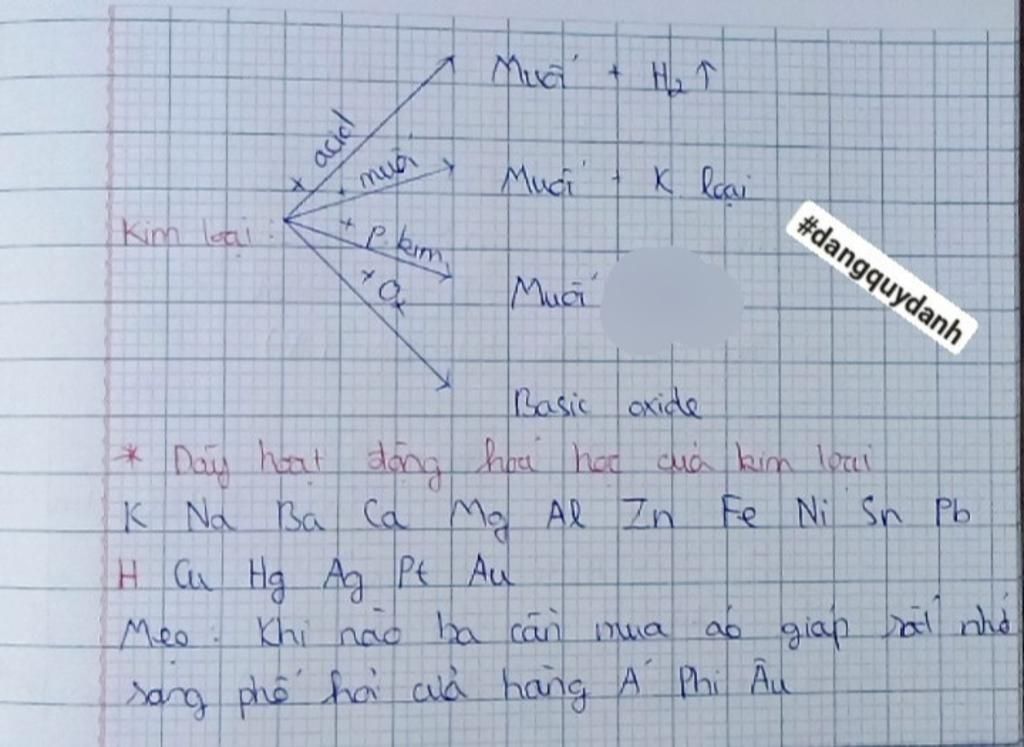 Muối + H₂ ↑
+ acid
+ muối
Muối + K loại
Kim loại :
+ p. kim
+ O₂
Muối
#dangquydanh
Basic oxide
* Dãy hoạt động hoá học của kim loại
K Na Ba Ca Mg Al Zn Fe Ni Sn Pb
H Cu Hg Ag Pt Au
Mẹo : Khi nào ba cần mua áo giáp sắt nhớ
sang phố hỏi cửa hàng Á Phi Âu